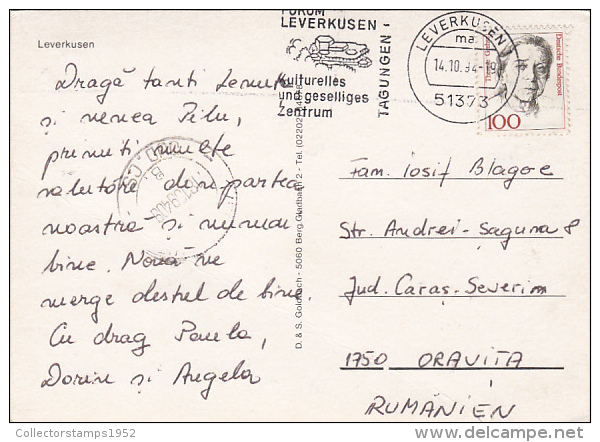 FORUM
LEVERKUSEN -
TAGUNGEN
Kulturelles
und geselliges
Zentrum
LEVERKUSEN
ma
14.10.94-19
51373
Deutsche Bundespost
100
Leverkusen
Dragă tanti Lenuța
și nenea Pilu,
primiti multe
salutări din partea
noastră și numai
bine. Nouă ne
merge destul de bine.
Cu drag Paula,
Dorin și Angela
D. & S. Goldbach - 5060 Berg.Gladbach 2 - Tel. (02202)
Fam. Iosif Blagoe
Str. Andrei-Șaguna 8
Jud. Caraș-Severin
1750 ORAVIȚA
RUMÄNIEN
Collectorstamps1952
delcampe.net